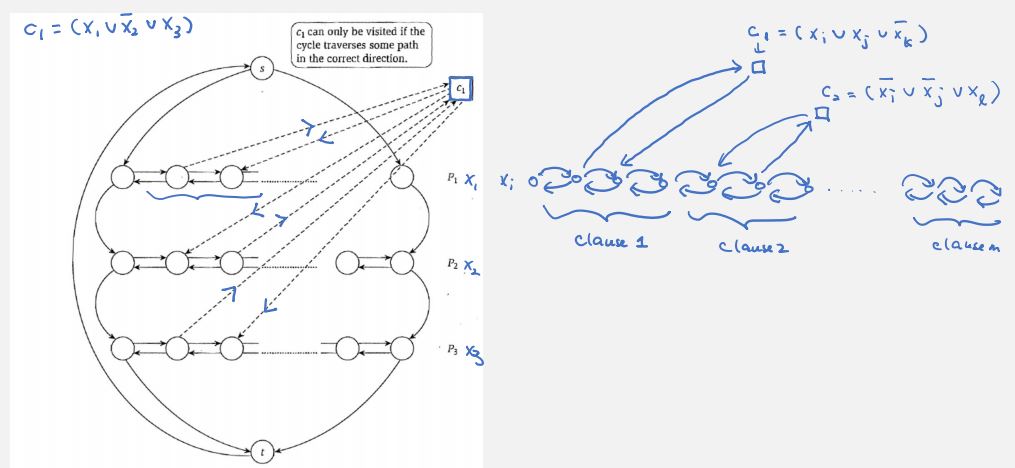 C₁ = (x₁ ∪ x̄₂ ∪ x₃)
c₁ can only be visited if the
cycle traverses some path
in the correct direction.
s
c₁
P₁ x₁
P₂ x₂
P₃ x₃
t
C₁ = (xᵢ ∪ xⱼ ∪ x̄ₖ)
C₂ = (x̄ᵢ ∪ x̄ⱼ ∪ xₗ)
xᵢ
clause 1
clause 2
clause m